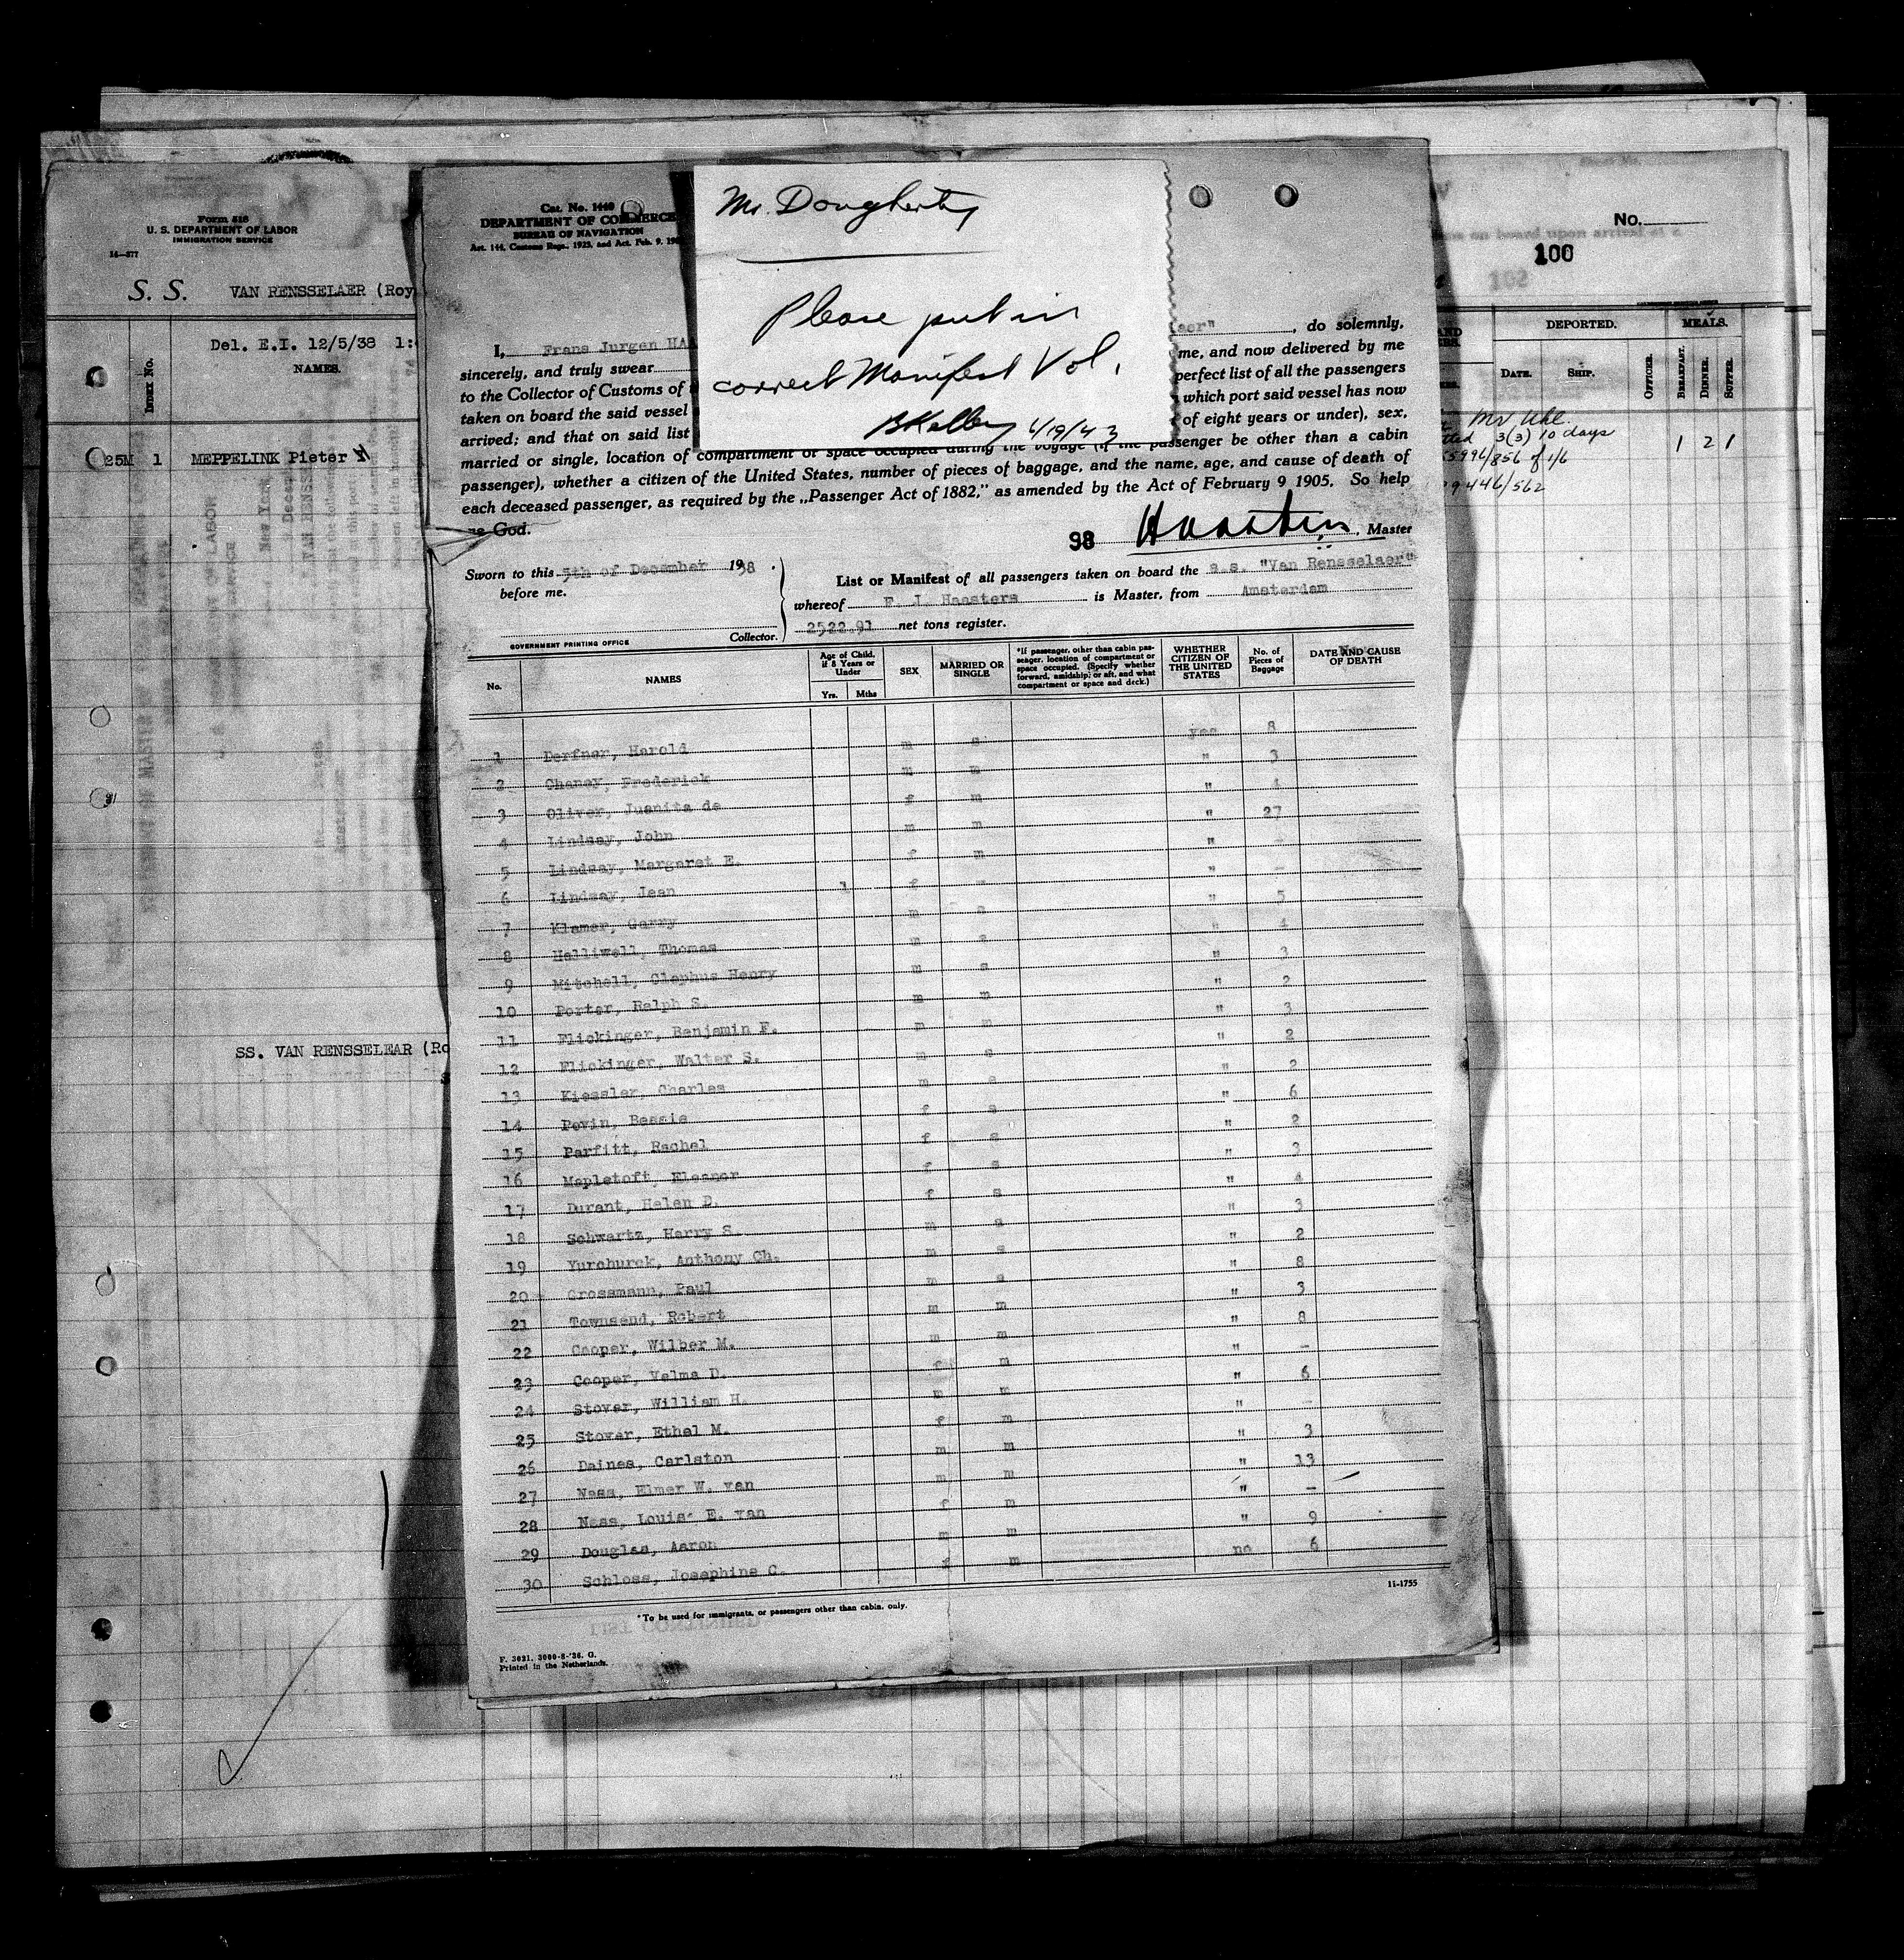 Form 518
U. S. DEPARTMENT OF LABOR
IMMIGRATION SERVICE
14—877
S. S. VAN RENSSELAER (Roy
INDEX No.
Del. E.I. 12/5/38
NAMES.
25M 1 MEPPELINK Pieter
SS. VAN RENSSELEAR (Ro
No.
100
102
DEPORTED.
MEALS.
DATE.
SHIP.
OFFICER.
BREAKFAST.
DINNER.
SUPPER.
Mr Uhl.
3(3) 10 days
5996/856 of 1/6
1 2 1
9446/562
Mr. Dougherty
Please put in
correct Manifest Vol.
BKelley 6/19/43
Cat. No. 1440
DEPARTMENT OF COMMERCE
BUREAU OF NAVIGATION
Act. 144, Customs Regs., 1923, and Act. Feb. 9, 190
I, Frans Jurgen HAA aer", do solemnly,
sincerely, and truly swear me, and now delivered by me
to the Collector of Customs of perfect list of all the passengers
taken on board the said vessel which port said vessel has now
arrived; and that on said list of eight years or under), sex,
married or single, location of compartment or space occupied during the voyage (if the passenger be other than a cabin
passenger), whether a citizen of the United States, number of pieces of baggage, and the name, age, and cause of death of
each deceased passenger, as required by the „Passenger Act of 1882,” as amended by the Act of February 9 1905. So help
me God.
98 Haasters, Master
Sworn to this 5th of December 1938.
before me.
Collector.
GOVERNMENT PRINTING OFFICE
List or Manifest of all passengers taken on board the s.s. "Van Rensselaer"
whereof F. J. Haasters is Master, from Amsterdam
2522.91 net tons register.
No.
NAMES
Age of Child, if 8 Years or Under
Yrs. Mths
SEX
MARRIED OR SINGLE
*If passenger, other than cabin passenger, location of compartment or space occupied. (Specify whether forward, amidship, or aft, and what compartment or space and deck.)
WHETHER CITIZEN OF THE UNITED STATES
No. of Pieces of Baggage
DATE AND CAUSE OF DEATH
1 Derfner, Harold m s yes 8
2 Chaney, Frederick m m " 3
3 Oliver, Juanita de f m " 4
4 Lindsay, John m m " 27
5 Lindsay, Margaret E. f m " -
6 Lindsay, Jean f - " -
7 Klamer, Garry m s " 5
8 Halliwell, Thomas m s " 4
9 Mitchell, Clephus Henry m s " 3
10 Porter, Ralph S. m m " 2
11 Flickinger, Benjamin F. m m " 3
12 Flickinger, Walter S. m s " 2
13 Kiessler, Charles m s " 2
14 Povin, Bessie f s " 6
15 Parfitt, Rachel f s " 2
16 Mapletoft, Eleanor f s " 3
17 Durant, Helen D. f s " 4
18 Schwartz, Harry S. m s " 3
19 Yurchurck, Anthony Ch. m s " 2
20 Grossmann, Paul m s " 8
21 Townsend, Robert m m " 3
22 Cooper, Wilber M. m m " 8
23 Cooper, Velma D. f m " -
24 Stover, William H. m m " 6
25 Stover, Ethel M. f m " -
26 Daines, Carlston m m " 3
27 Ness, Elmer W. van m m " 13
28 Ness, Louise E. van f m " -
29 Douglas, Aaron m m " 9
30 Schloss, Josephine C. f m no 6
11-1755
*To be used for immigrants, or passengers other than cabin, only.
F. 3021. 3000-8-'36. G.
Printed in the Netherlands.